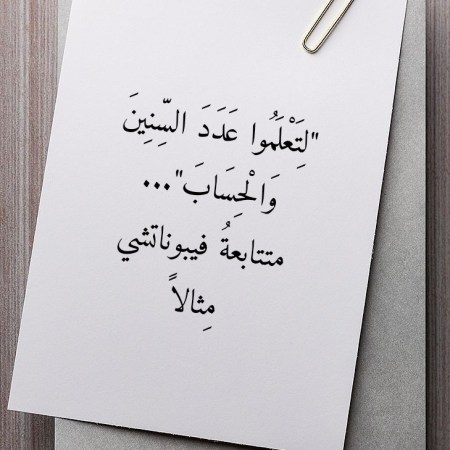 "لِتَعْلَمُوا عَدَدَ السِّنِينَ
وَالْحِسَابَ"...
متتابعةُ فيبوناتشي
مِثالاً